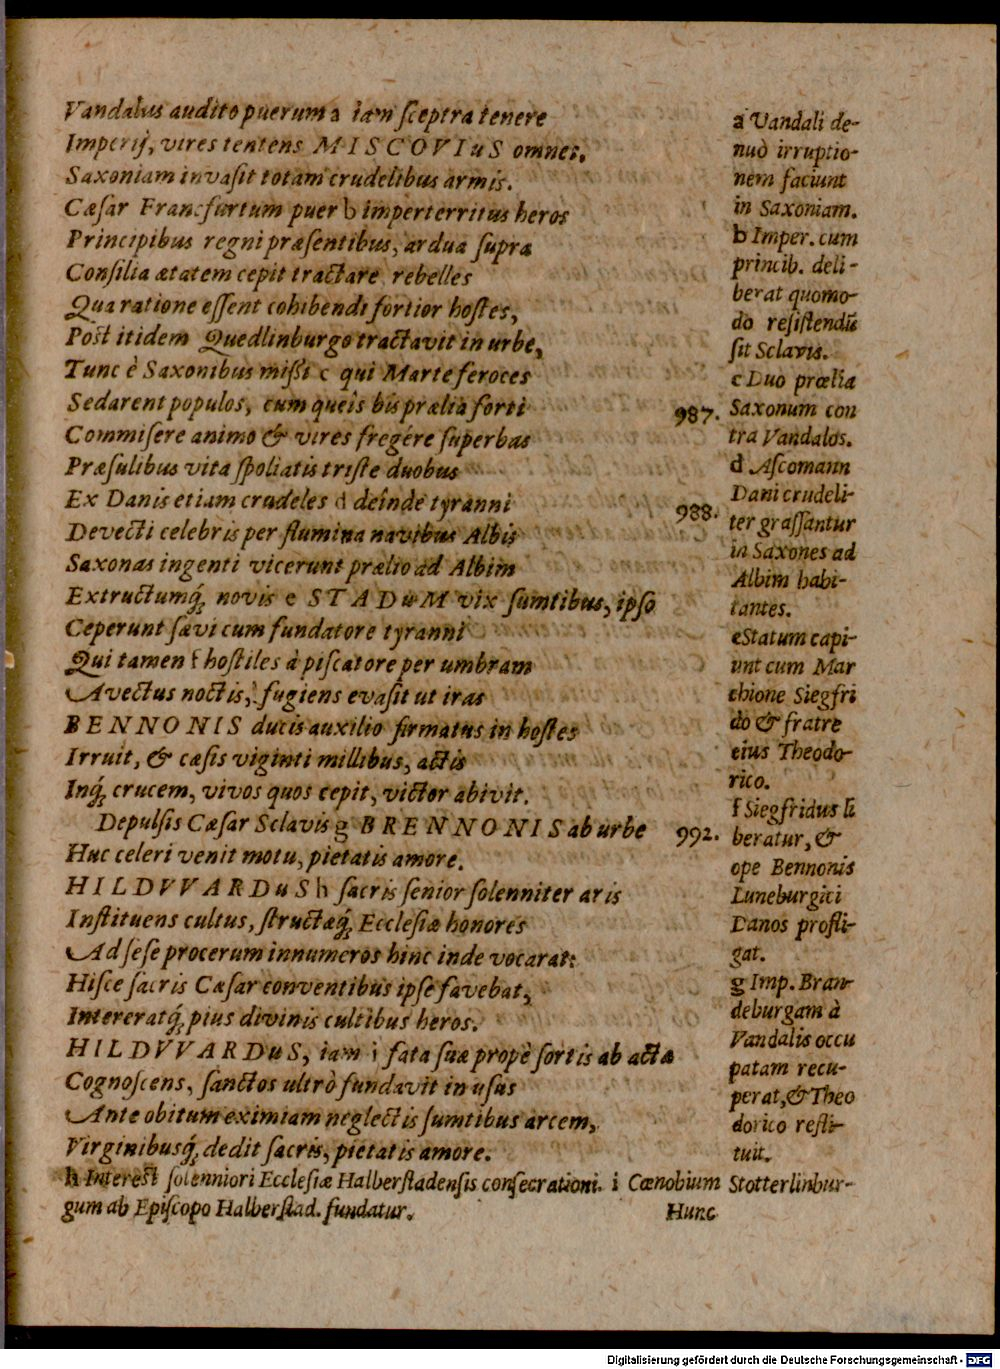 Vandalus audito puerum a iam sceptra tenere
Imperij, vires tentens MISCOVIuS omnes,
Saxoniam invasit totam crudelibus armis.
Cæsar Francfurtum puer b imperterritus heros
Principibus regni præsentibus, ardua supra
Consilia ætatem cepit tractare rebelles
Qua ratione essent cohibendi fortior hostes,
Post itidem Quedlinburgo tractavit in urbe,
Tunc è Saxonibus missi c qui Marte feroces
Sedarent populos, cum queîs bis prælia forti
Commisere animo & vires fregére superbas
Præsulibus vita spoliatis triste duobus
Ex Danis etiam crudeles d deinde tyranni
Devecti celebris per flumina navibus Albis
Saxonas ingenti vicerunt prælio ad Albim
Extructumq́; novis e STADuM vix sumtibus, ipso
Ceperunt sævi cum fundatore tyranni
Qui tamen f hostiles à piscatore per umbram
Avectus noctis, fugiens evasit ut iras
BENNONIS ducis auxilio firmatus in hostes
Irruit, & cæsis viginti millibus, actis
Inq́; crucem, vivos quos cepit, victor abivit.
Depulsis Cæsar Sclavis g BRENNONIS ab urbe
Huc celeri venit motu, pietatis amore.
HILDVVARDuS h sacris senior solenniter aris
Instituens cultus, structæq́; Ecclesiæ honores
Ad sese procerum innumeros hinc inde vocarat:
Hisce sacris Cæsar conventibus ipse favebat,
Intereratq́; pius divinis cultibus heros.
HILDVVARDuS, iam i fata suæ propè sortis ab acta
Cognoscens, sanctos ultrò fundavit in usus
Ante obitum eximiam neglectis sumtibus arcem,
Virginibusq́; dedit sacris, pietatis amore.
a Vandali de-
nuò irruptio-
nem faciunt
in Saxoniam.
b Imper. cum
princib. deli-
berat quomo-
do resistendū
sit Sclavis.
c Duo prœlia
987. Saxonum con
tra Vandalos.
d Ascomann
Dani crudeli-
988. ter grassantur
in Saxones ad
Albim habi-
tantes.
e Statum capi-
unt cum Mar
chione Siegfri
do & fratre
eius Theodo-
rico.
f Siegfridus li
992. beratur, &
ope Bennonis
Luneburgici
Danos profli-
gat.
g Imp. Bran-
deburgam à
Vandalis occu
patam recu-
perat, & Theo
dorico resti-
tuit.
h Interest solenniori Ecclesiæ Halberstadensis consecrationi. i Cœnobium Stotterlinbur-
gum ab Episcopo Halberstad. fundatur.
Hunc
Digitalisierung gefördert durch die Deutsche Forschungsgemeinschaft - DFG